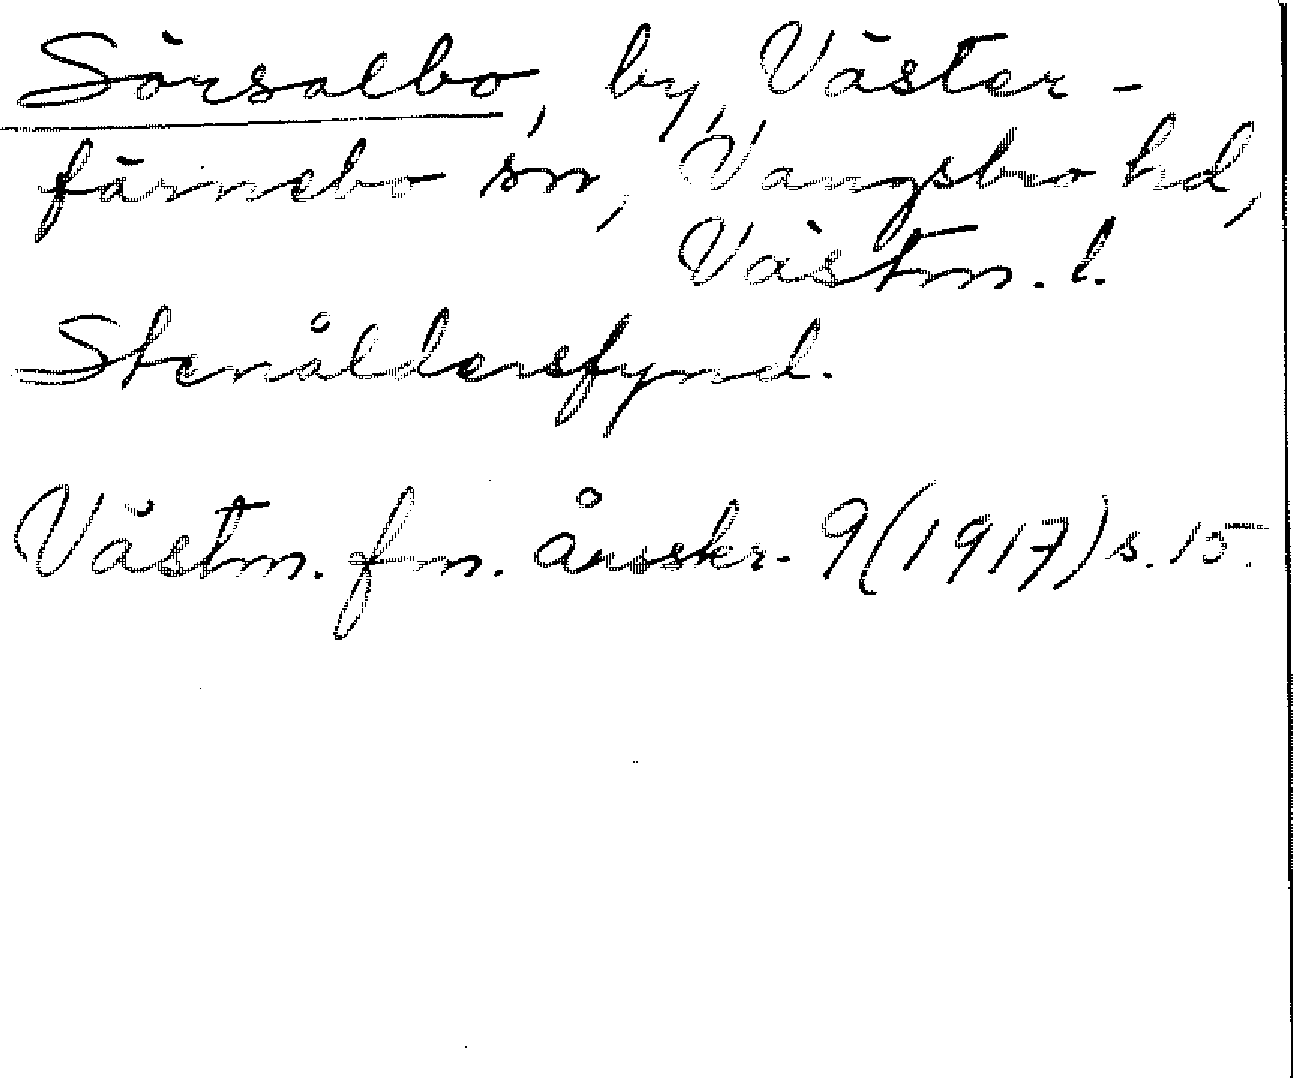 Sörsalbo, by, Väster-
färnebo sn, Vangsbro hd,
Västm. l.
Stenåldersfynd.
Västm. fm. årsskr. 9 (1917) s. 15.